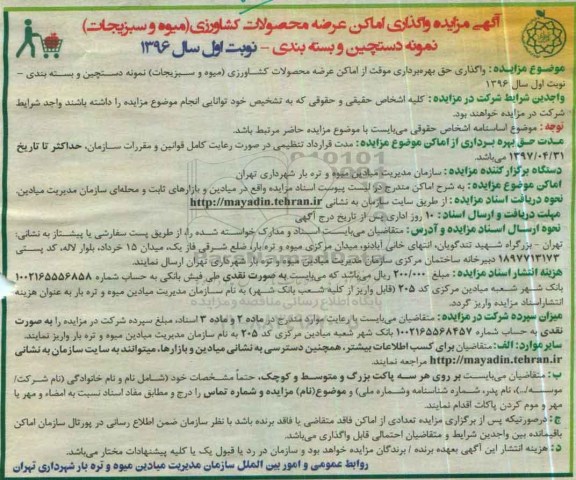 آگهی مزایده واگذاری اماکن عرضه محصولات کشاورزی(میوه و سبزیجات)
نمونه دستچین و بسته بندی – نوبت اول سال ۱۳۹۶
موضوع مزایـده : واگذاری حق بهره‌برداری موقت از اماکن عرضه محصولات کشـاورزی (میوه و سـبزیجات) نمونه دستچین و بسته بندی –
نوبت اول سال ۱۳۹۶
واجدین شرایط شرکت در مزایده : کلیه اشخاص حقیقی و حقوقی که به تشخیص خود توانایی انجام موضوع مزایده را داشته باشند واجد شرایط
شرکت در مزایده خواهند بود.
توجه : موضوع اساسنامه اشخاص حقوقی می‌بایست با موضوع مزایده حاضر مرتبط باشد.
مـدت حـق بهره بـرداری از اماکن موضوع مزایده: مدت قرارداد تنظیمی در صورت رعایت کامل قوانین و مقررات سـازمان، حداکثر تا تاریخ
۱۳۹۷/۰۴/۳۱ می‌باشد.
دستگاه برگزار کننده مزایده : سازمان مدیریت میادین میوه و تره بار شهرداری تهران
اماکن موضوع مزایده : به شرح اماکن مندرج در لیست پیوست اسناد مزایده واقع در میادین و بازارهای ثابت و محله‌ای سازمان مدیریت میادین.
نحوه دریافت اسناد مزایده : از طریق سایت سازمان به نشانی http://mayadin.tehran.ir
مهلت دریافت و ارسال اسناد : ۱۰ روز اداری پس از تاریخ درج آگهی
نحوه ارسـال اسـناد مزایده و آدرس : متقاضیان می‌بایست اسـناد و مدارک خواسته شده را، از طریق پست سفارشی یا پیشتاز به نشانی:
تهران – بزرگراه شـهید تندگویان، انتهای خانی آبادنو، میدان مرکزی میوه و تره بار، ضلع شـرقی فاز یک، میدان ۱۵ خرداد، بلوار لاله، کد پستی
۱۸۹۷۷۱۳۱۷۳ دبیرخانه ساختمان مرکزی سازمان مدیریت میادین میوه و تره بار شهرداری تهران ارسال نمایند.
هزینه انتشار اسناد مزایده : مبلغ ۲۰۰/۰۰۰ ریال می‌باشد که می‌بایست به صورت نقدی طی فیش بانکی به حساب شماره ۱۰۰۲۱۶۵۵۶۸۵۸
بانک شـهر شـعبه میادین مرکزی کد ۲۰۵ (قابل واریز از کلیه شـعب بانک شـهر) به نام سـازمان مدیریت میادین میوه و تره بار به عنوان هزینه
انتشار اسناد مزایده واریز گردد.
میزان سپرده شرکت در مزایده : متقاضیان می‌بایست با رعایت موارد مندرج در ماده ۲ و ماده ۳ اسناد، مبلغ سپرده شرکت در مزایده را به صورت
نقدی به حساب شماره ۱۰۰۲۱۶۵۵۶۸۴۵۷ بانک شهر شعبه میادین مرکزی کد ۲۰۵ به نام سازمان مدیریت میادین میوه و تره بار واریز نمایند.
سایر موارد: الف: متقاضیان برای کسب اطلاعات بیشتر، همچنین دسترسی به نشانی میادین و بازارها، میتوانند به سایت سازمان به نشانی
http://mayadin.tehran.ir مراجعه نمایند.
ب: متقاضیان می‌بایست بر روی هر سه پاکت بزرگ و متوسط و کوچک، حتماً مشخصات خود (شـامل نام و نام خانوادگی (نام شـرکت/
موسسه/...)، نام پدر، شماره شناسنامه وشماره ملی) و موضوع(نام) مزایده و شماره تماس را درج و مطابق مفاد اسناد نسبت به امضاء و مهر یا
مهر و موم کردن پاکات اقدام نمایند.
ج: درصورتیکه پس از برگزاری مزایده تعدادی از اماکن فاقد متقاضی یا فاقد برنده باشد با نظر سازمان ضمن اطلاع رسانی در پورتال سازمان اماکن
باقیمانده بین واجدین شرایط و متقاضیان احتمالی قابل واگذاری می‌باشد.
د: هزینه انتشار این آگهی بعهده برنده / برندگان مزایده خواهد بود و سازمان در رد یا قبول یک یا کلیه پیشنهادات مختار می‌باشد.
روابط عمومی و امور بین الملل سازمان مدیریت میادین میوه و تره بار شهرداری تهران